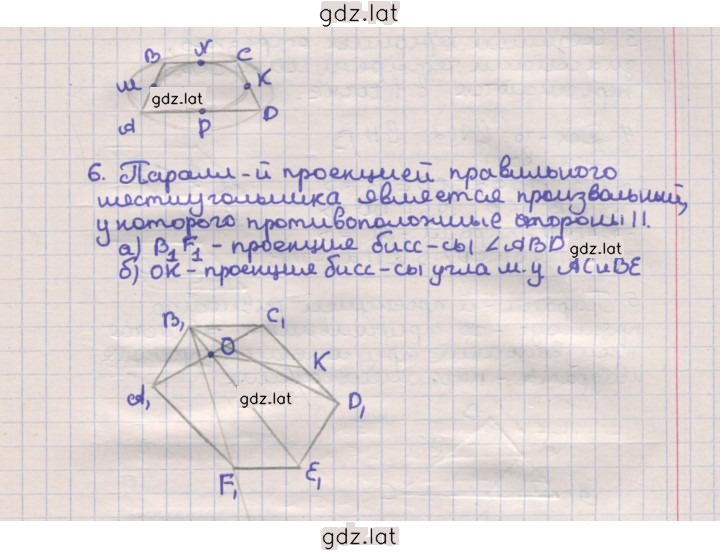 gdz.lat
B N C
M K
gdz.lat
A P D
6. Паралл-й проекцией правильного
шестиугольника является произвольный,
у которого противоположные стороны ||.
а) B₁F₁ - проекция бисс-сы ∠ABD gdz.lat
б) OK - проекция бисс-сы угла м.у AC и BE
B₁ C₁
O
K
A₁ gdz.lat D₁
F₁ E₁
gdz.lat